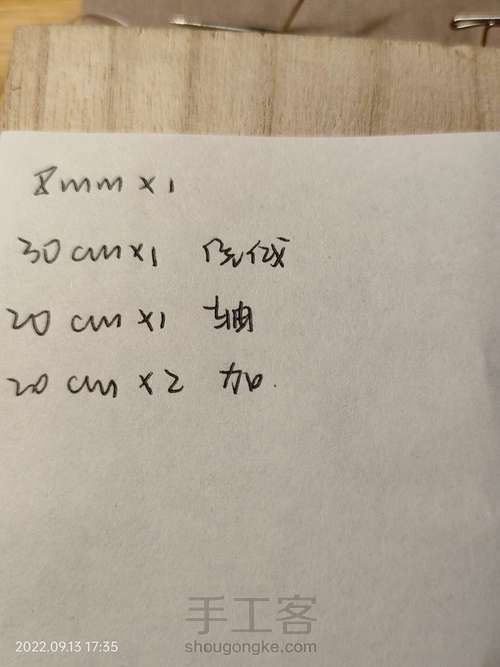 8mm x1
30cm x1 保线
20 cm x1 轴
20 cm x2 加
手工客
2022.09.13 17:35
shougongke.com